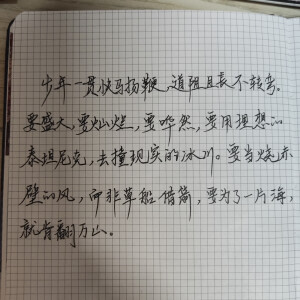 少年一贯快马扬鞭，道阻且长不转弯。
要盛大，要灿烂，要哗然，要用理想的
泰坦尼克，去撞现实的冰川。要当烧赤
壁的风，而非草船借箭，要为了一片海，
就肯翻万山。